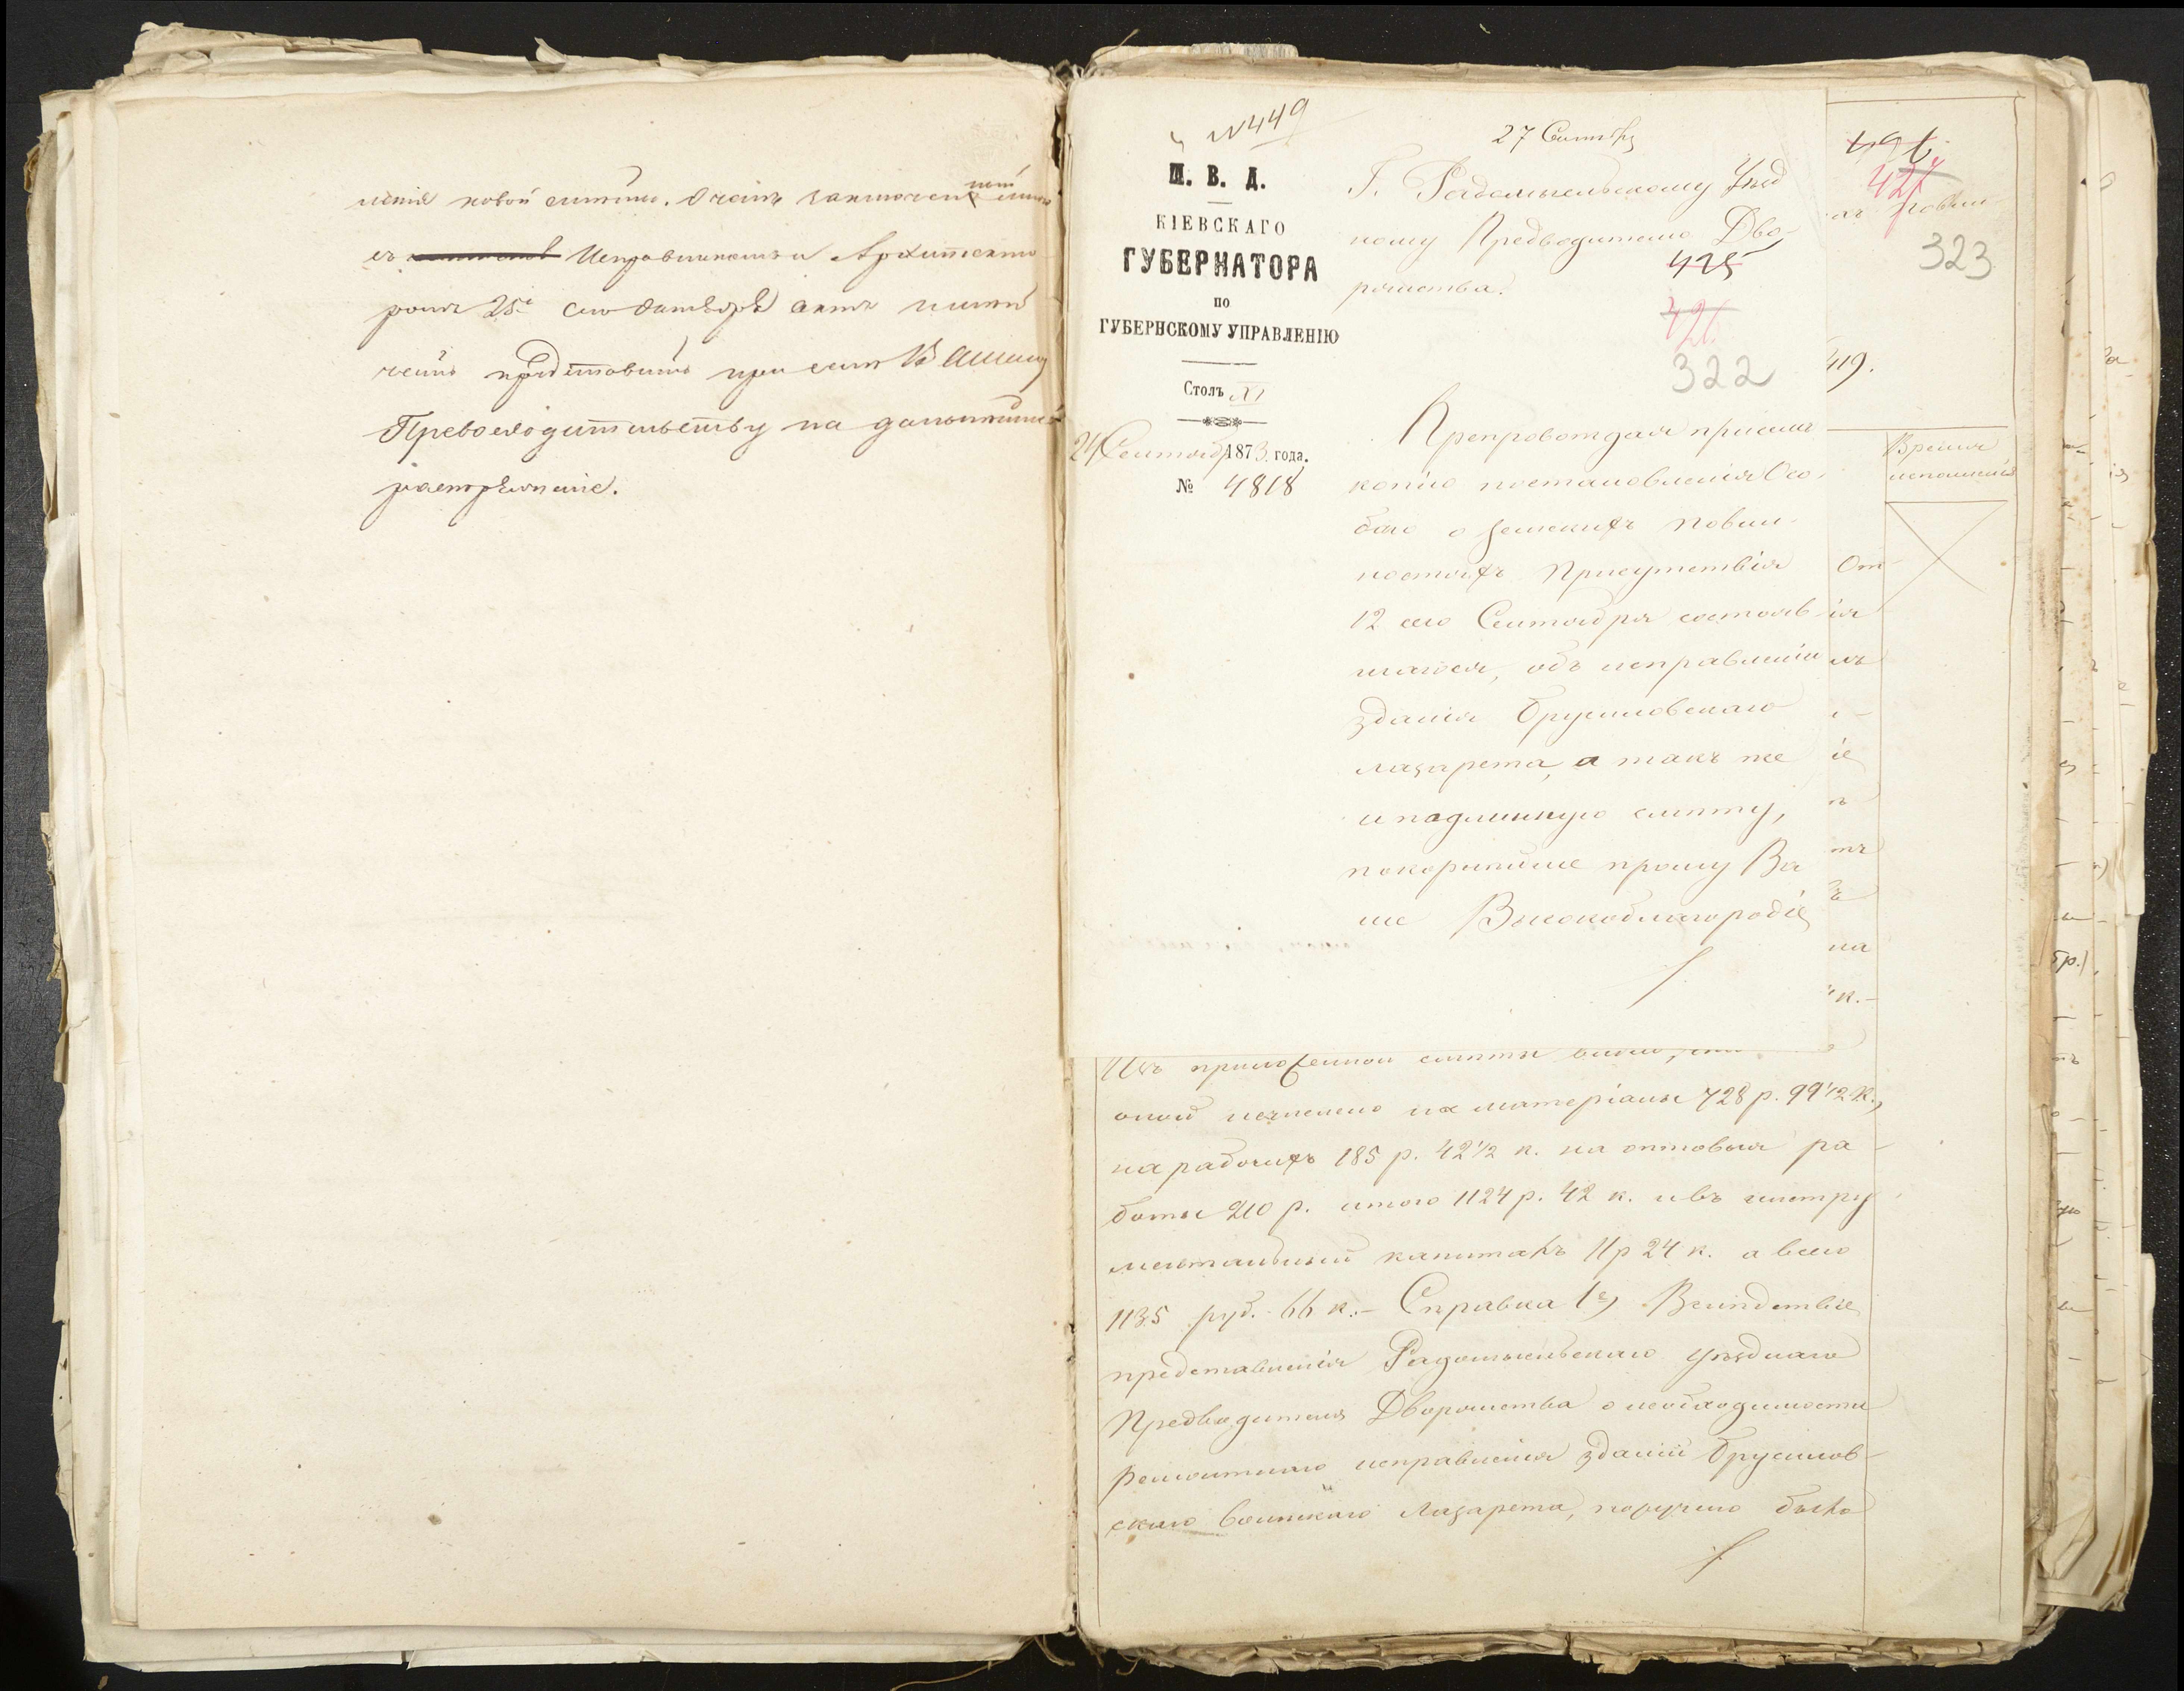 новой смѣты. О чемъ заключенный мною
съ Исправникомъ и Архитекто
ромъ 25го сего Октября актъ имѣю
честь представить при семъ Вашему
Превосходительству на дальнѣйшее
распоряженіе.
N449
М. В. Д.
КІЕВСКАГО
ГУБЕРНАТОРА
ПО
ГУБЕРНСКОМУ УПРАВЛЕНІЮ
Столъ XI
24 Сентября 1873 года.
№ 4818
27 Сентябр
Г. Радомысльскому Уѣзд
ному Предводителю Дво-
рянства.
425
421
322
Препровождая при семъ
копію постановленія Осо-
баго о земскихъ повин-
ностяхъ Присутствія
12 сего Сентября состояв-
шагося, объ исправленіи
зданія Брусиловскаго
лазарета, а такъ же
и подлинную смѣту,
покорнѣйше прошу Ва
ше Высокоблагородіе
421
323
419.
Время
исполненія
Изъ приложенной смѣты видно, что
оной исчислено на матеріалы 728 р. 99 1/2 к.,
на рабочихъ 185 р. 42 1/2 к. на оптовыя ра-
боты 210 р. итого 1124 р. 42 к. и въ инстру
ментальный капиталъ 11 р 24 к. а всего
1135 руб. 66 к.- Справка 1е) Вслѣдствіе
представленія Радомысльскаго Уѣзднаго
Предводителя Дворянства о необходимости
ремонтнаго исправленія зданій Брусилов-
скаго воинскаго лазарета, поручено было